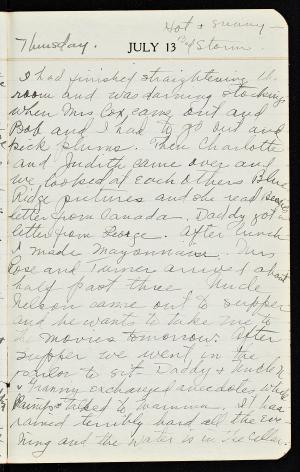 Hot + sunny —
Thursday. JULY 13 Storm
I had finished straightening the
room and was darning stockings
when Mrs Cox came out and
Bob and I had to go out and
pick plums. Then Charlotte
and Judith came over and
we looked at each others Blue
Ridge pictures and she read
letter from Canada. Daddy got a
letter from George. After lunch
I made Mayonnaise. Mrs
Rose and Turner arrived about
half past three. Uncle
Nelson came out to supper
and he wants to take me to
the movies tomorrow. After
supper we went in the
parlor to sit. Daddy + Uncle N.
+ Granny exchanged anecdotes, while
talked to Mamma. It has
rained terribly hard all the eve-
ning and the water is in the cellar.